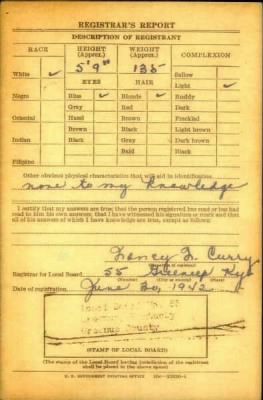 REGISTRAR'S REPORT
DESCRIPTION OF REGISTRANT
RACE HEIGHT (Approx.) WEIGHT (Approx.) COMPLEXION
5'9" 135 Sallow
White ✓ EYES HAIR Light ✓
Negro Blue ✓ Blonde ✓ Ruddy
Gray Red Dark
Oriental Hazel Brown Freckled
Brown Black Light brown
Indian Black Gray Dark brown
Bald Black
Filipino
Other obvious physical characteristics that will aid in identification.
none to my knowledge
I certify that my answers are true; that the person registered has read or has
had read to him his own answers; that I have witnessed his signature or mark and that
all of his answers of which I have knowledge are true, except as follows:
Nancy L. Curry
Registrar for Local Board 55 Greenup Ky
Date of registration June 30, 1942
Local Board No. 55
Greenup County
STAMP OF LOCAL BOARD
(The stamp of the Local Board having jurisdiction of the registrant
shall be placed in the above space)
U. S. GOVERNMENT PRINTING OFFICE